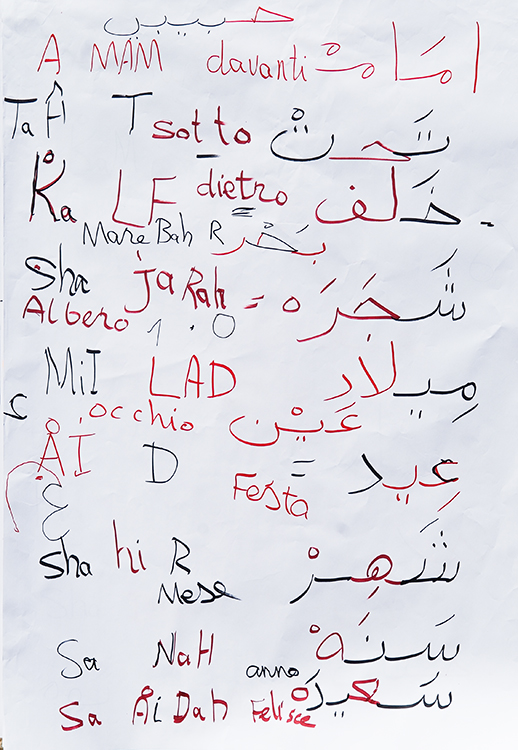 حبيبي
A MAM davanti امامْ
TaH T sotto تَحتْ
Ka LF dietro خَلف
Mare Bah R بَحْر
sha jaRah = شَجَرَه
Albero 1.0
MiI LAD مِيلاد
occhio عَيْن
ÅI D = عِيد
Festa
ع
sha hi R شَهِرْ
Mese
Sa NaH anno سَنَهْ
Sa ÅiDah Felisce سَعيدَه